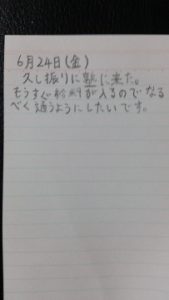 6月24日(金)
久し振りに塾に来た。
もうすぐ給料が入るのでなる
べく通うようにしたいです。